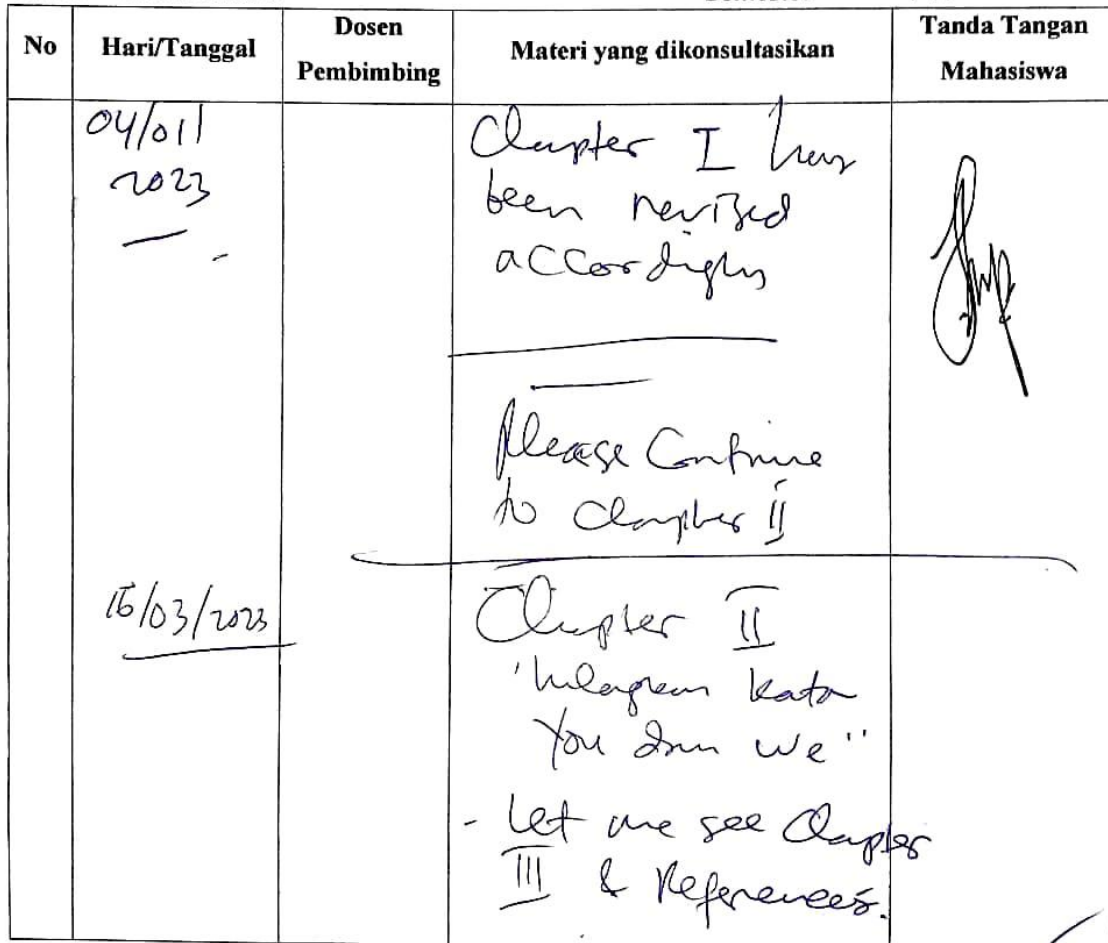 No
Hari/Tanggal
Dosen
Pembimbing
Materi yang dikonsultasikan
Tanda Tangan
Mahasiswa
04/01/
2023
Chapter I has
been revised
accordingly
Please Continue
to Chapter II
16/03/2023
Chapter II
"hilangkan kata
You dan we"
- Let me see Chapter
III & References.